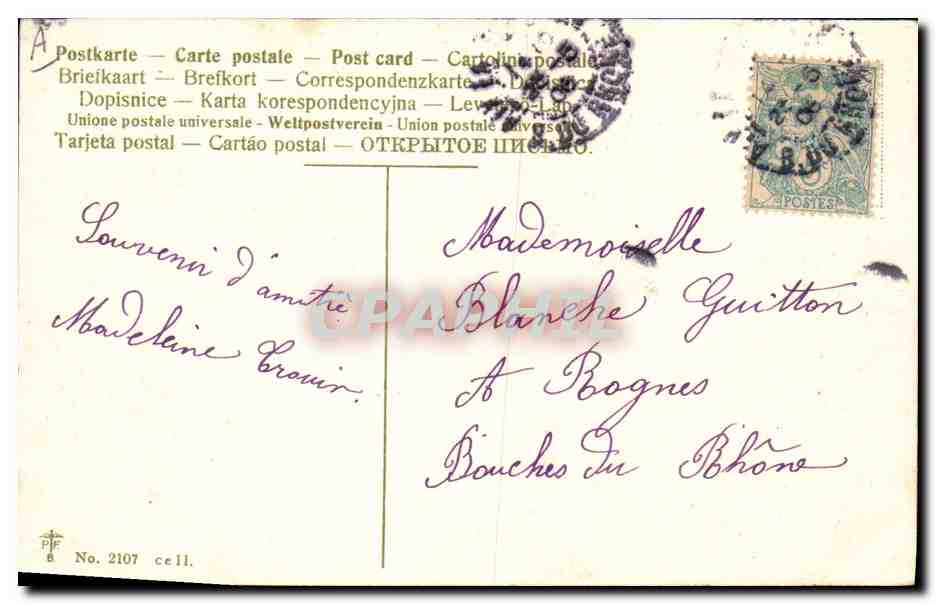 A
Postkarte — Carte postale — Post card — Cartolina postale
Briefkaart — Brefkort — Correspondenzkarte — Dopisnica
Dopisnice — Karta korespondencyjna — Levelező-Lap
Unione postale universale - Weltpostverein - Union postale universelle
Tarjeta postal — Cartáo postal — ОТКРЫТОЕ ПИСЬМО.
POSTES
Souvenir d'amitié
Madeleine
Mademoiselle
Blanche Guitton
A Rognes
Bouches du Rhône
CPAPHIL
P F
8
No. 2107 cell.